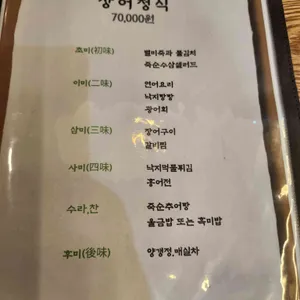 장어정식
70,000원
초미(初味) 별미죽과 물김치
죽순수삼샐러드
이미(二味) 연어요리
낙지탕탕
광어회
삼미(三味) 장어구이
갈비찜
사미(四味) 낙지먹물튀김
홍어전
수라,찬 죽순추어탕
울금밥 또는 흑미밥
후미(後味) 양갱정,매실차